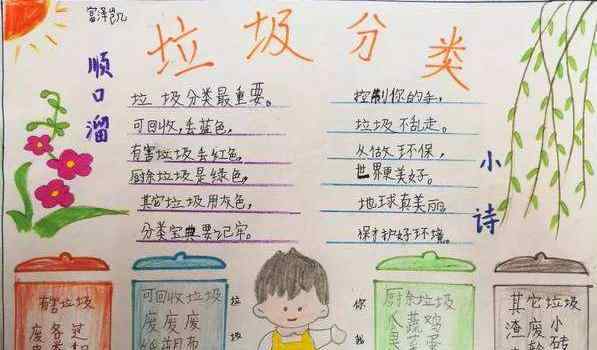 富泽凯
垃圾分类
顺口溜
垃圾分类最重要。
可回收,丢蓝色,
有害垃圾丢红色,
厨余垃圾是绿色,
其它垃圾用灰色,
分类宝典要记牢。
小诗
控制你的手,
垃圾不乱走。
从做环保,
世界更美好。
地球真美丽,
保护好环境。
有害垃圾
废 各 过
可回收垃圾
废 废 废
纸 塑 布
垃
圾
你
我
厨余垃圾
瓜 蔬 鸡
果 菜 蛋
其它垃圾
渣 废 小
砖